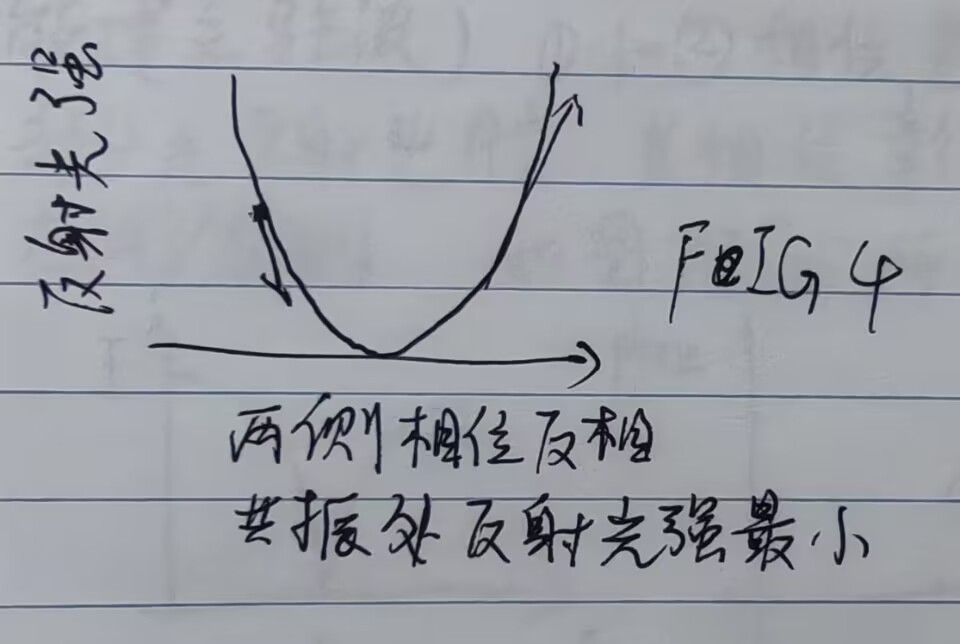 反射光强
FIG 4
两侧相位反相
共振处反射光强最小